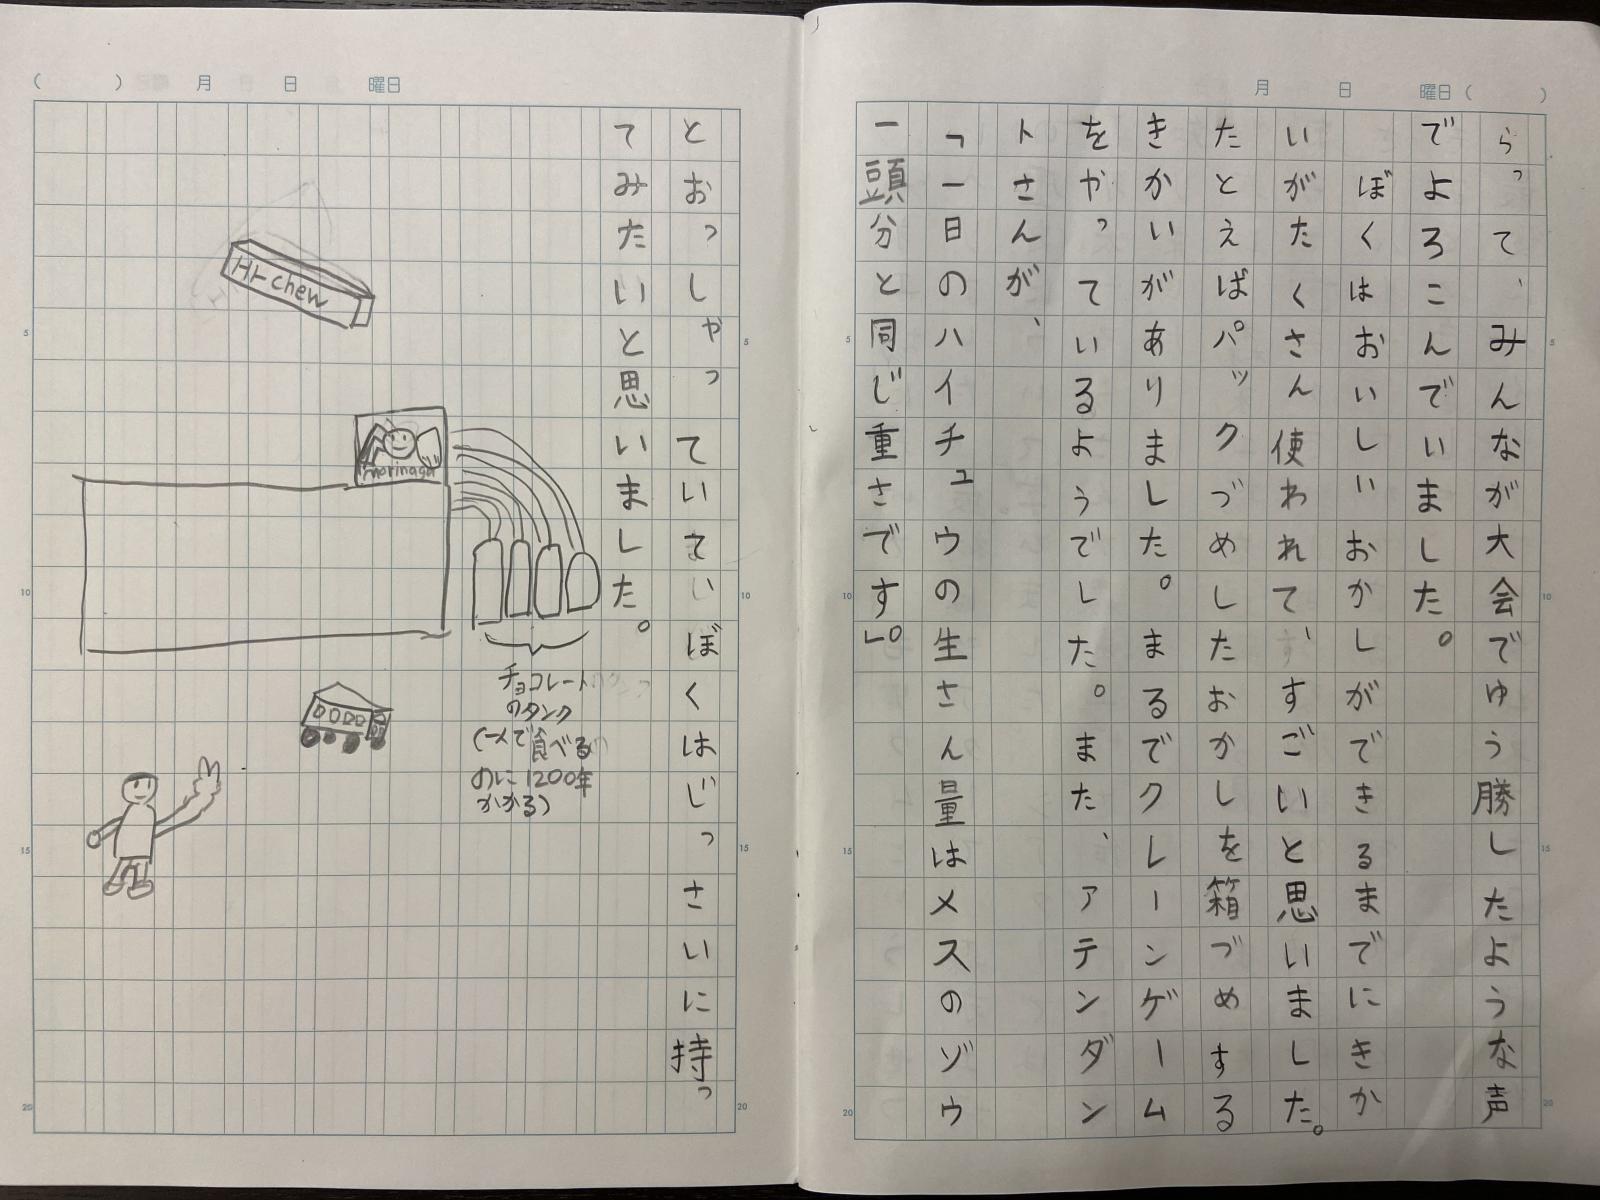 月 日 曜日( )
らって、みんなが大会でゆう勝したような声
でよろこんでいました。
ぼくはおいしいおかしができるまでにきか
いがたくさん使われて、すごいと思いました。
たとえばパックづめしたおかしを箱づめする
きかいがありました。まるでクレーンゲーム
をやっているようでした。また、アテンダン
トさんが、
「一日のハイチュウの生さん量はメスのゾウ
一頭分と同じ重さです。」
( ) 月 日 曜日
とおっしゃっていてぼくはじっさいに持っ
てみたいと思いました。
Hi-chew
morinaga
チョコレート
のタンク
(一人で食べる
のに1200年
かかる)
5
10
15
20
5
10
15
20
5
10
15
20
5
10
15
20